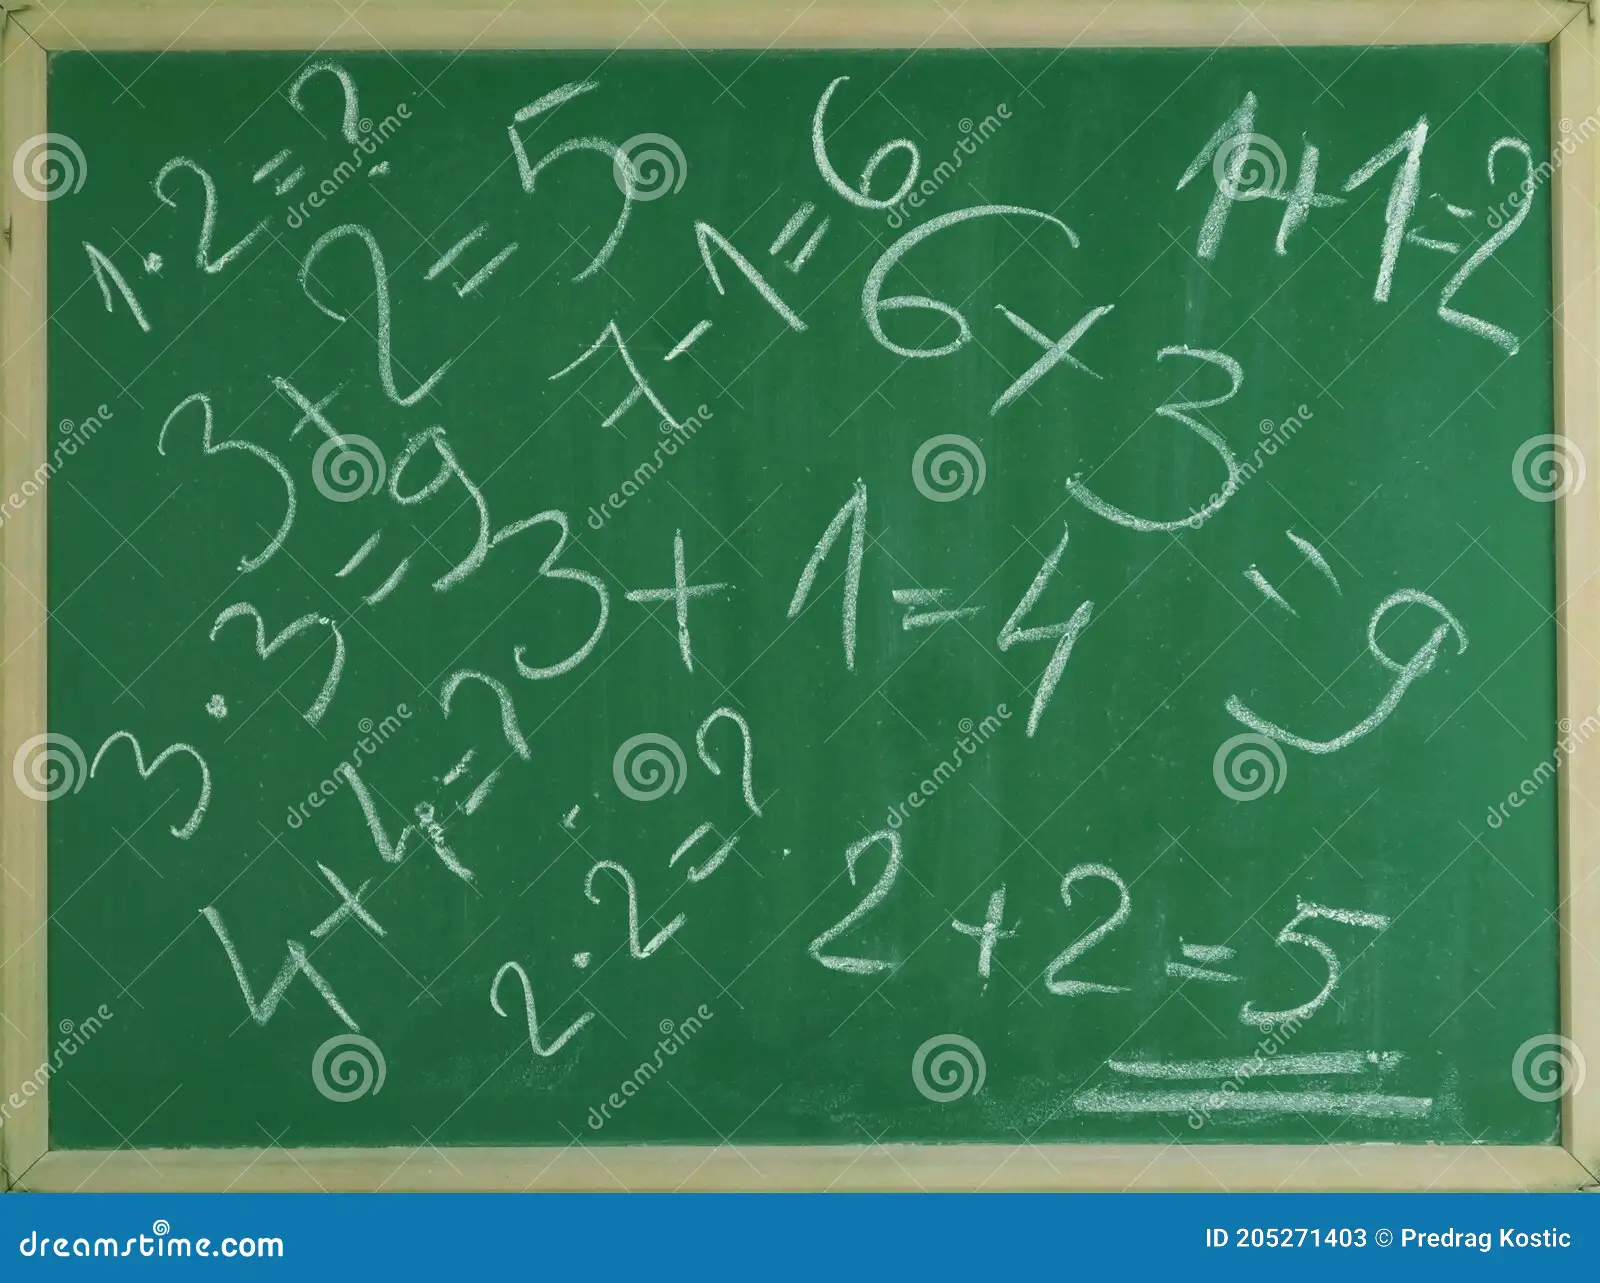 1·2=?
3+2=5
7-1=6
1+1=2
6×3=9
3·3=9
3+1=4
4+4=?
2·2=?
2+2=5
dreamstime.com
ID 205271403 © Predrag Kostic